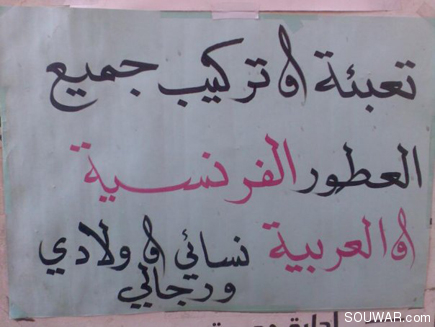 تعبئة و تركيب جميع
العطور الفرنسية
و العربية نسائي و ولادي
و رجالي
SOUWAR.com